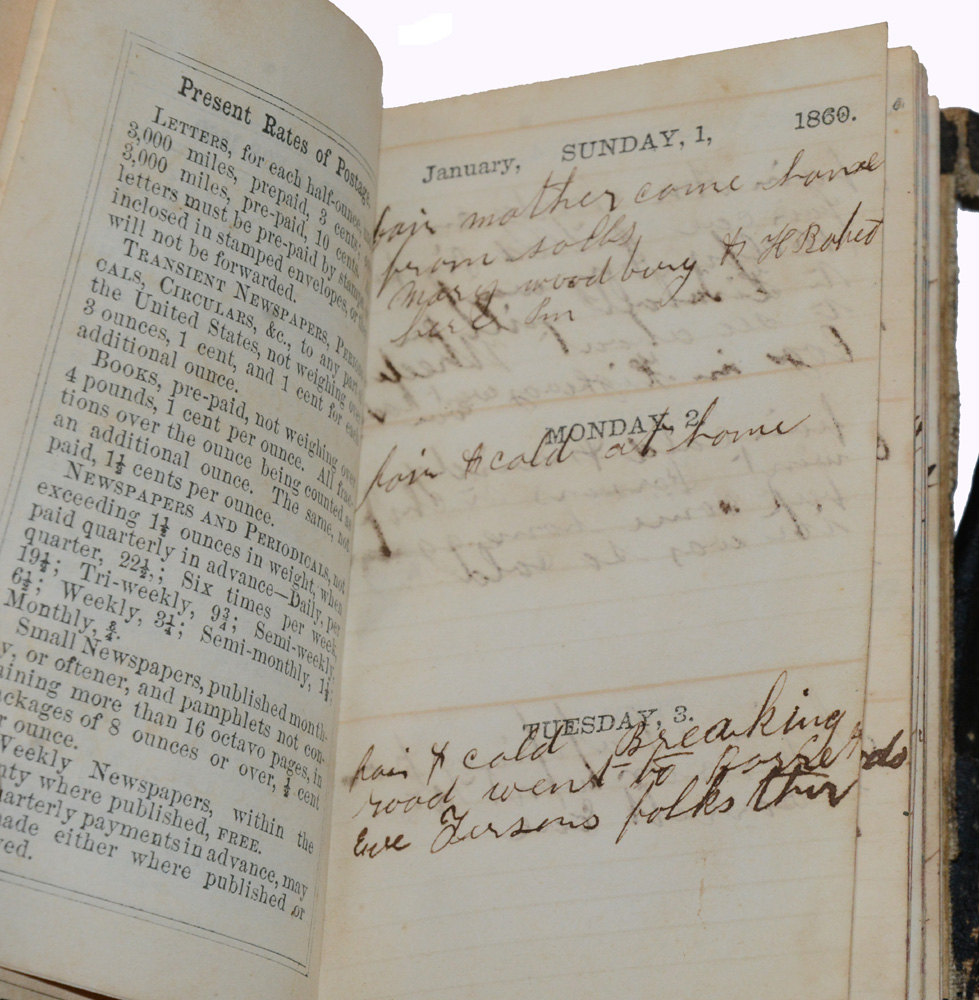 Present Rates of Postage.
LETTERS, for each half-ounce,
3,000 miles, prepaid, 3 cents;
3,000 miles, pre-paid, 10 cents.
letters must be pre-paid by stamps,
inclosed in stamped envelopes, or
will not be forwarded.
TRANSIENT NEWSPAPERS, PERIODI-
CALS, CIRCULARS, &c., to any part
the United States, not weighing over
3 ounces, 1 cent, and 1 cent for each
additional ounce.
BOOKS, pre-paid, not weighing over
4 pounds, 1 cent per ounce. All frac-
tions over the ounce being counted as
an additional ounce. The same, not
paid, 1½ cents per ounce.
NEWSPAPERS AND PERIODICALS, not
exceeding 1½ ounces in weight, when
paid quarterly in advance—Daily, per
quarter, 22¾; Six times per week,
19½; Tri-weekly, 9¾; Semi-weekly,
6½; Weekly, 3¼; Semi-monthly, 1½;
Monthly, ¾.
Small Newspapers, published month-
y, or oftener, and pamphlets not con-
aining more than 16 octavo pages, in
ackages of 8 ounces or over, ½ cent
r ounce.
Weekly Newspapers, within the
nty where published, FREE.
uarterly payments in advance, may
ade either where published or
ved.
January, SUNDAY, 1, 1860.
fair mother come home
from solks
Mary woodbury & H
here
MONDAY, 2.
fair & cold at home
TUESDAY, 3.
fair & cold Breaking
road went to
Eve folks thir